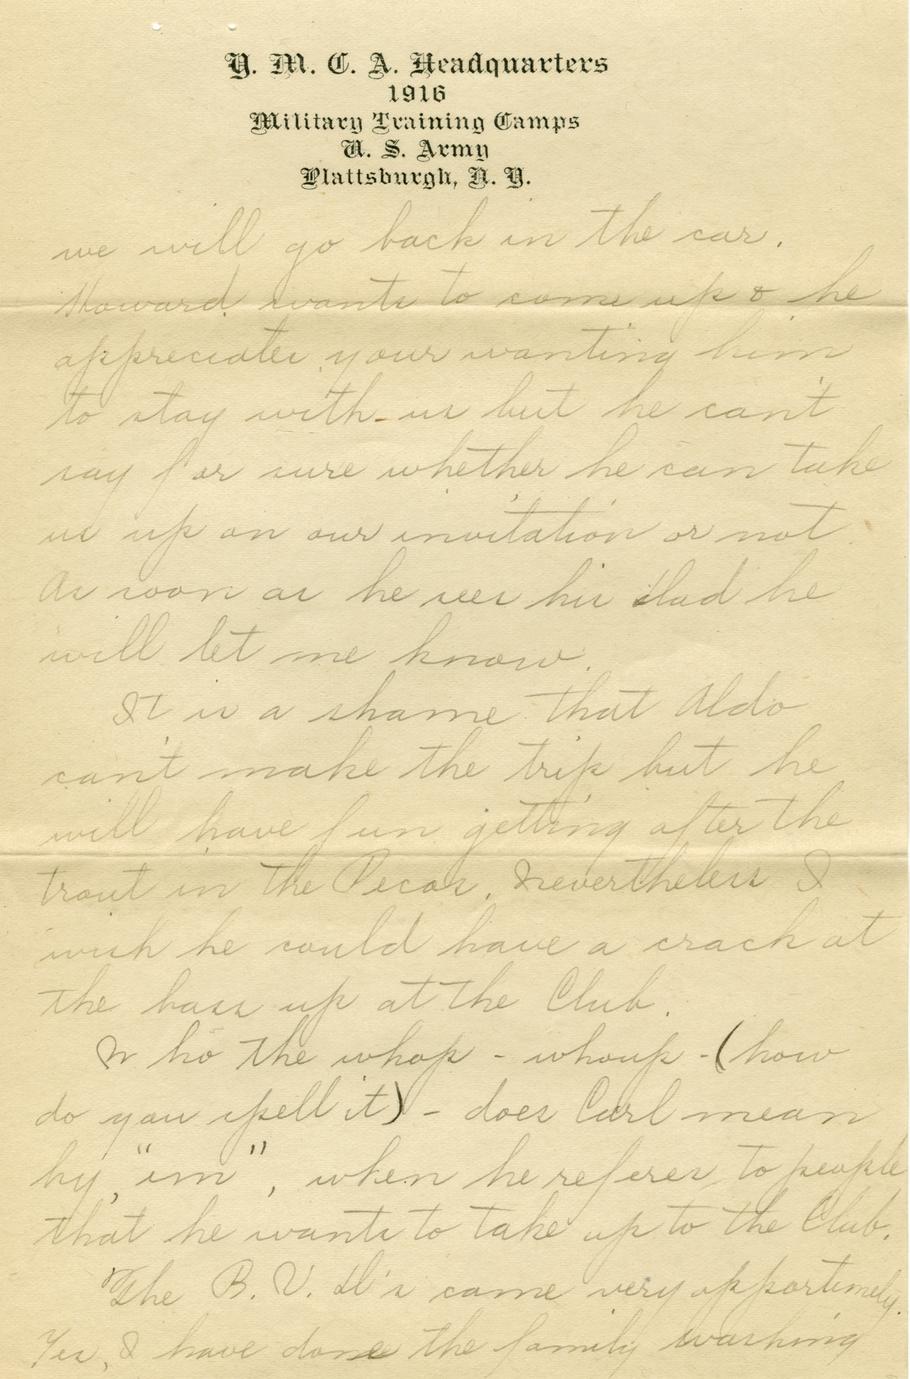 Y. M. C. A. Headquarters
1916
Military Training Camps
U. S. Army
Plattsburgh, N. Y.
we will go back in the car.
Howard wants to come up & he
appreciates your wanting him
to stay with us but he can't
say for sure whether he can take
us up on our invitation or not
As soon as he sees his dad he
will let me know.
It is a shame that Aldo
can't make the trip but he
will have fun getting after the
trout in the Pecos. Nevertheless I
wish he could have a crack at
the bass up at the Club.
Who the whop - whoup - (how
do you spell it) - does Carl mean
by, "im", when he referes to people
that he wants to take up to the Club.
The B. V. D's came very opportunely.
Yes, I have done the family washing